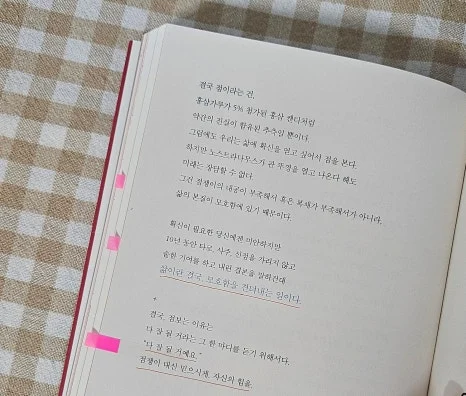 결국 점이라는 건,
홍삼가루가 5% 첨가된 홍삼 캔디처럼
약간의 진실이 함유된 추측일 뿐이다.
그럼에도 우리는 삶에 확신을 얻고 싶어서 점을 본다.
하지만 노스트라다무스가 관 뚜껑을 열고 나온다 해도
미래는 장담할 수 없다.
그건 점쟁이의 내공이 부족해서 혹은 복채가 부족해서가 아니라,
삶의 본질이 모호함에 있기 때문이다.
확신이 필요한 당신에겐 미안하지만
19년 동안 타로, 사주, 신점을 가리지 않고
숱한 기여를 하고 내린 결론을 말하건대
삶이란 결국, 모호함을 견뎌내는 일이다.
+
결국, 점보는 이유는
다 잘 될 거라는 그 한 마디를 듣기 위해서다.
"다 잘 될 거예요."
점쟁이 대신 믿으시게, 자신의 힘을.